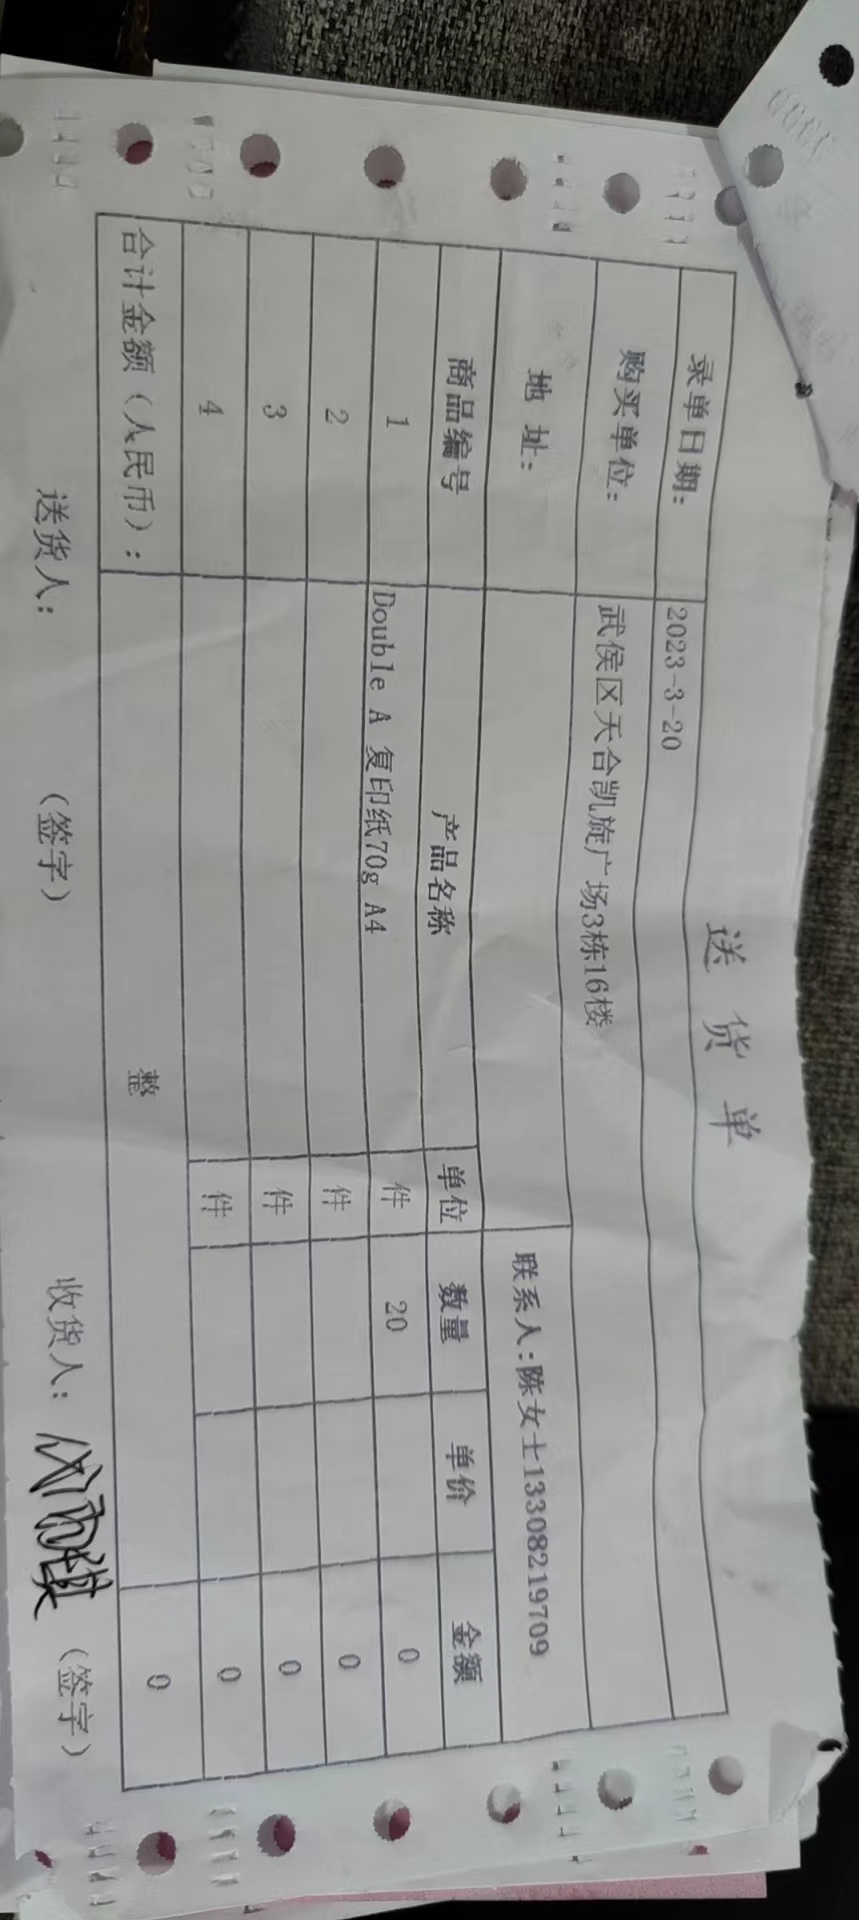 送 货 单
录单日期： 2023-3-20
购买单位： 武侯区天合凯旋广场3栋16楼
地 址： 联系人：陈女士13308219709
商品编号 产品名称 单位 数量 单价 金额
1 Double A 复印纸70g A4 件 20 0
2 件 0
3 件 0
4 件 0
合计金额（人民币）： 整 0
送货人： （签字） 收货人： （签字）